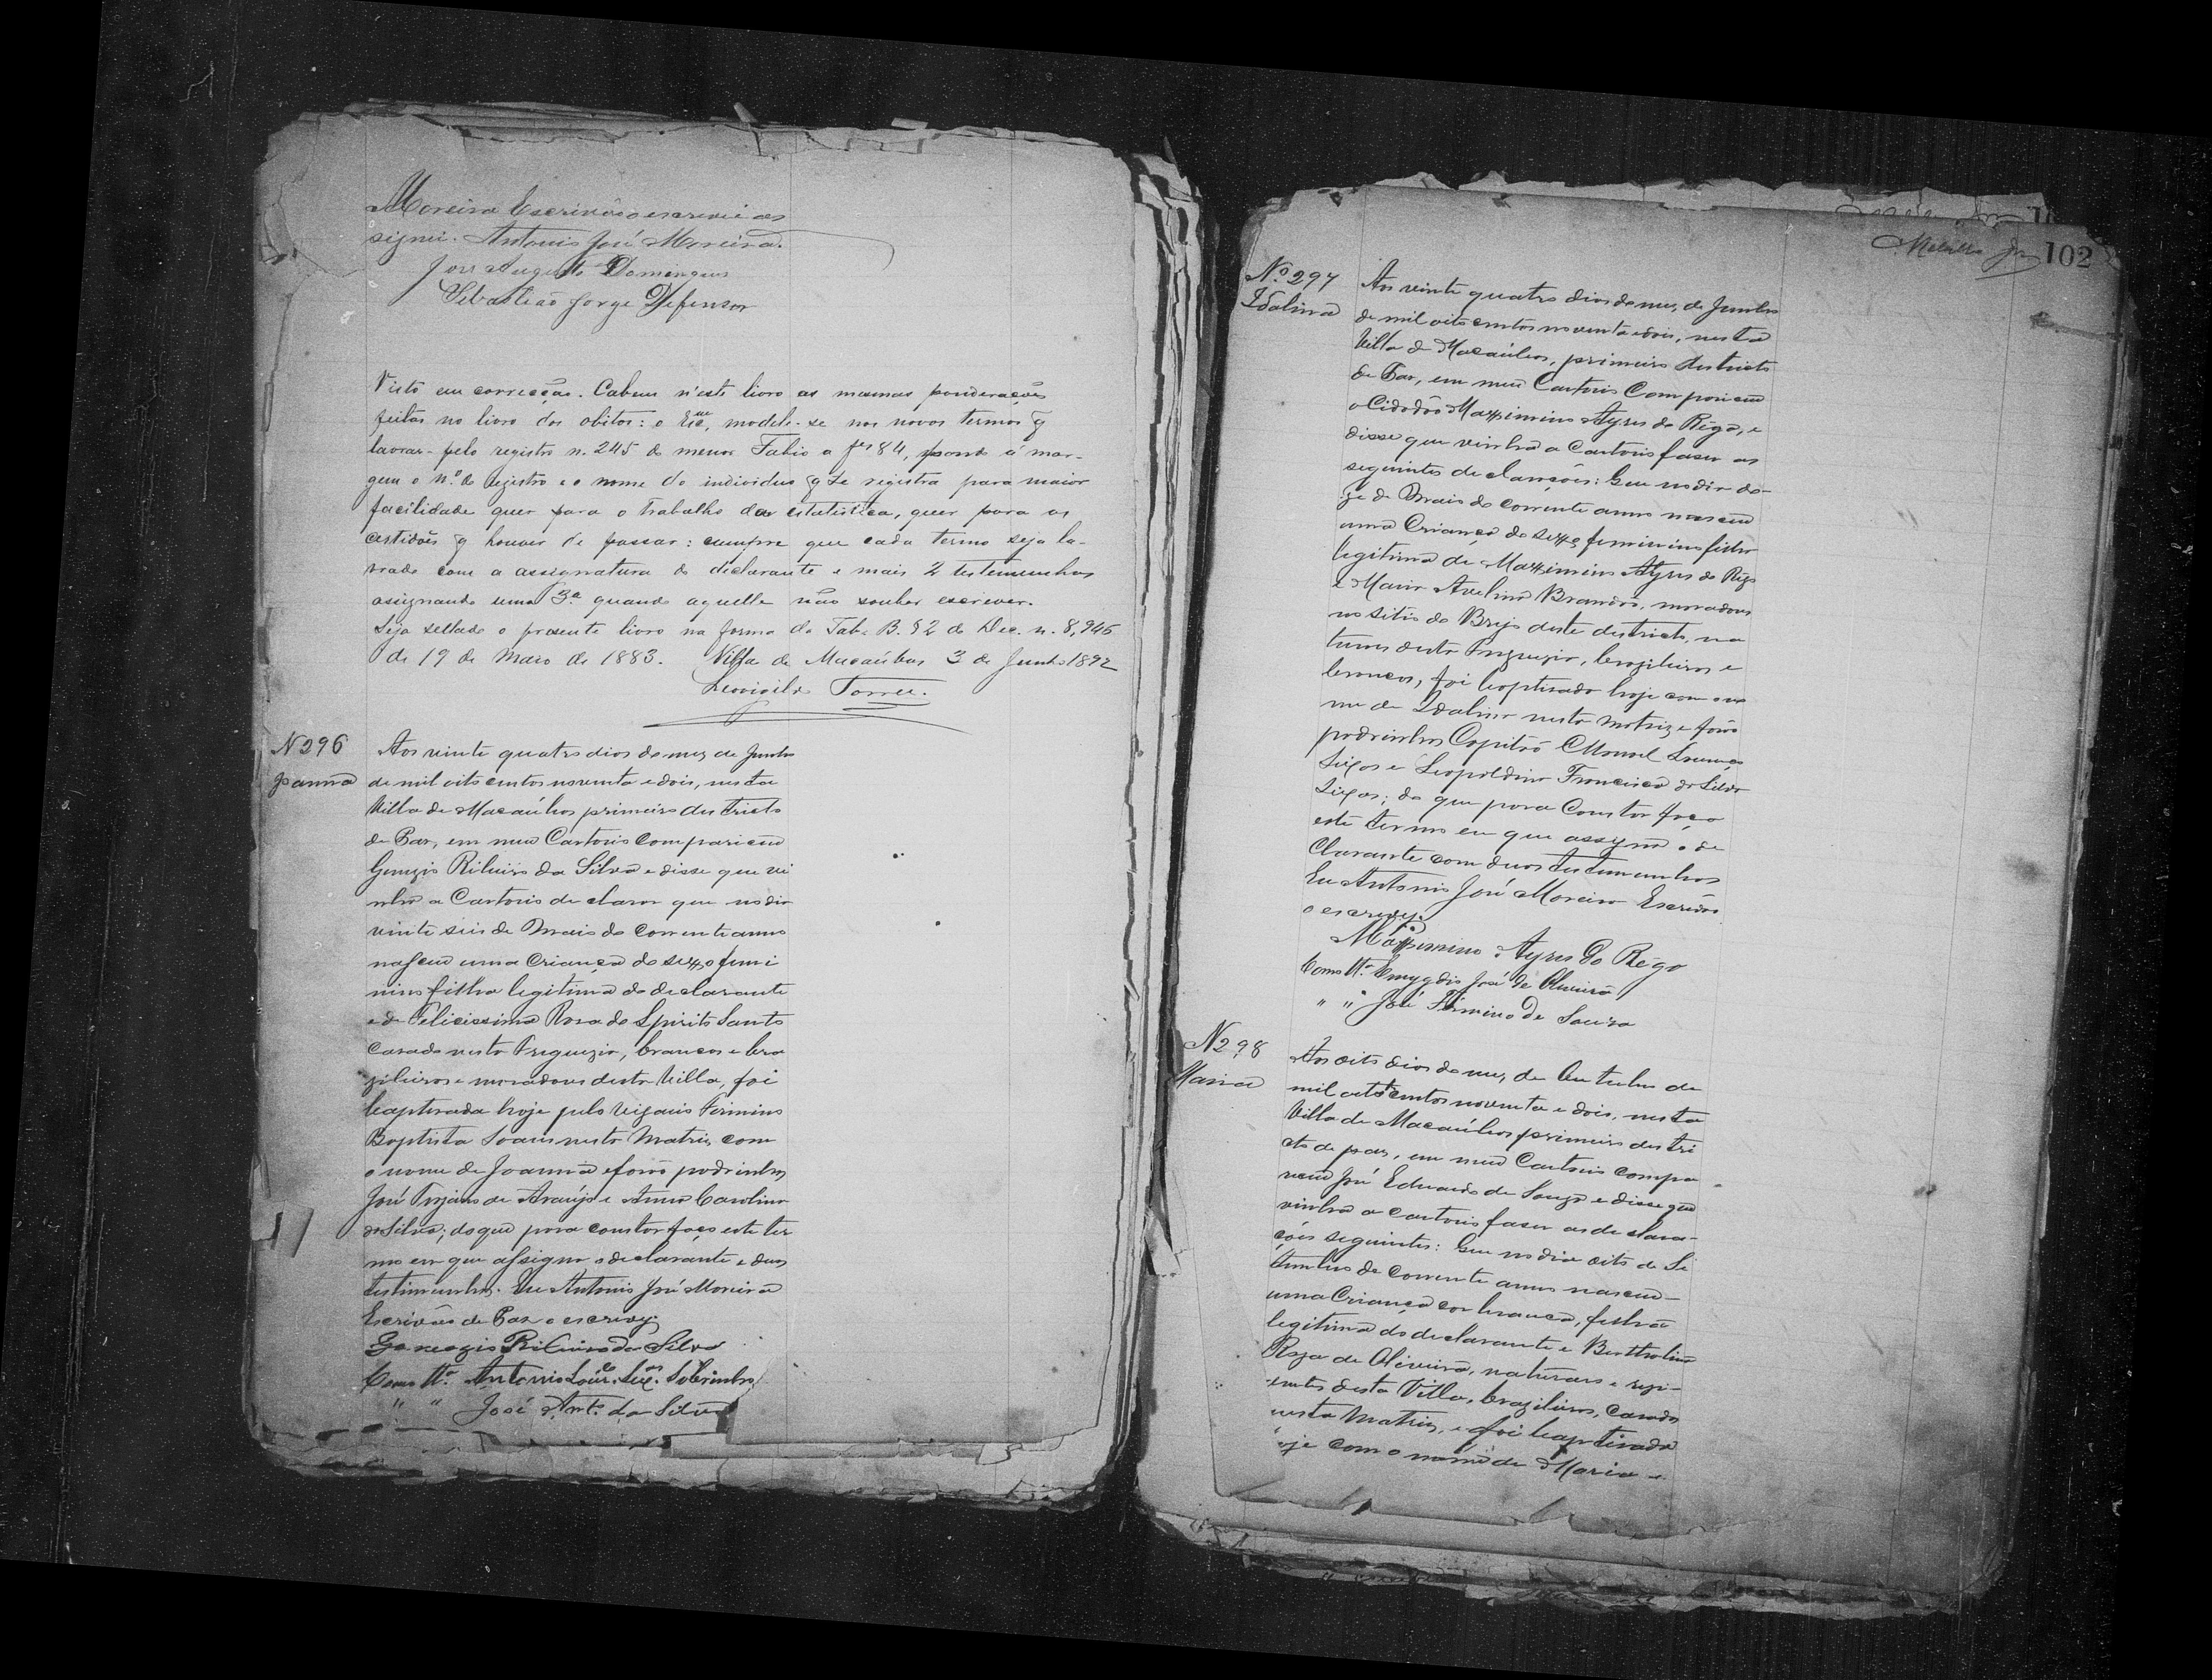 Moreira Escrivão o escrevi e as
signei. Antonio José Moreira.
José Augusto Domingues
Sebastião Jorge Defensor
Visto em correcção. Cabem n'este livro as mesmas ponderações
feitas no livro dos obitos: o Escam, modele-se nos novos termos q
lavrar - pelo registro n. 245 do menor Fabio a fs 84, pondo á mar-
gem o nº do registro e o nome do individuo q se registra para maior
facilidade quer para o trabalho da estatistica, quer para as
certidões q houver de passar: cumpre que cada termo seja la-
vrado com a assignatura do declarante e mais 2 testemunhas
assignando uma 3ª quando aquelle não souber escrever.
Seja sellado o presente livro na forma da Tab. B. § 2 do Dec. n. 8,946
de 19 de Maio de 1883. Villa de Macaúbas 3 de Junho 1892
Leovigildo Torres.
N 296
Joanna
Aos vinte quatro dias do mez de Junho
de mil oito centos noventa e dois, nesta
Villa de Macaúbas primeiro districto
de Paz, em meu Cartorio compareceu
Genezio Ribeiro da Silva e disse que vi
nha a Cartorio declarar que no dia
vinte seis de Maio do corrente anno
nasceu uma Criança do sexo femi
nino filha legitima do declarante
e de Felicissima Rosa do Spirito Santo
Casado nesta Freguezia, brancos e bra
zileiros e moradores desta Villa, foi
baptizada hoje pelo Vigario Firmino
Baptista Soares nesta Matriz, com
o nome de Joanna e forão padrinhos
José Trajano de Araújo e Anna Carolina
da Silva; do que para constar faço este ter
mo em que assigna o declarante e duas
testimunhas. Eu Antonio José Moreira
Escrivão de Paz o escrevy.
Genezio Ribeiro da Silva
Como tta. Antonio Lour.ço Seix.as Sobrinho
" " José Ant.º da Silva
102
Nº 297
Idalina
Aos vinte quatro dias do mez de Junho
de mil oito centos noventa e dois, nesta
Villa de Macaúbas, primeiro districto
de Paz, em meu Cartorio Compareceu
o Cidadão Maximino Ayres do Rêgo, e
disse que vinha a Cartorio faser as
seguintes declarações: Que no dia do-
ze de Maio do corrente anno nasceu
uma Criança do sexo feminino filha
legitima de Maximino Ayres do Rêgo
e Maria Avelina Brandão, moradores
no sitio do Brejo deste districto, na
turaes desta Freguezia, brazileiros e
brancos, foi baptisada hoje com o no
me de Idalina nesta Matriz e forão
padrinhos Capitão Manoel Lourenço
Seixas e Leopoldina Francisca da Silva
Seixas; do que para Constar faço
este termo em que assigna o de
clarante com duas testemunhas
Eu Antonio José Moreira Escrivão
o escrevy.
Maximino Ayres do Rêgo
Como tta. Emygdio José de Oliveira
" " José Firmino de Souza
N 298
Maria
Aos oito dias do mez de Outubro de
mil oitocentos noventa e dois, nesta
Villa de Macaúbas primeiro distri
cto de paz, em meu Cartorio compa
receu José Eduardo de Souza e disse que
vinha a cartorio faser as declara-
ções seguintes: Que no dia oito de Se
tembro do corrente anno nasceu
uma Criança cor branca, filha
legitima do declarante e Bertholina
Roza de Oliveira, naturaes e resi-
dentes desta Villa, brazileiros, Casados
nesta Matriz, e foi baptizada
oje com o nome de Maria e